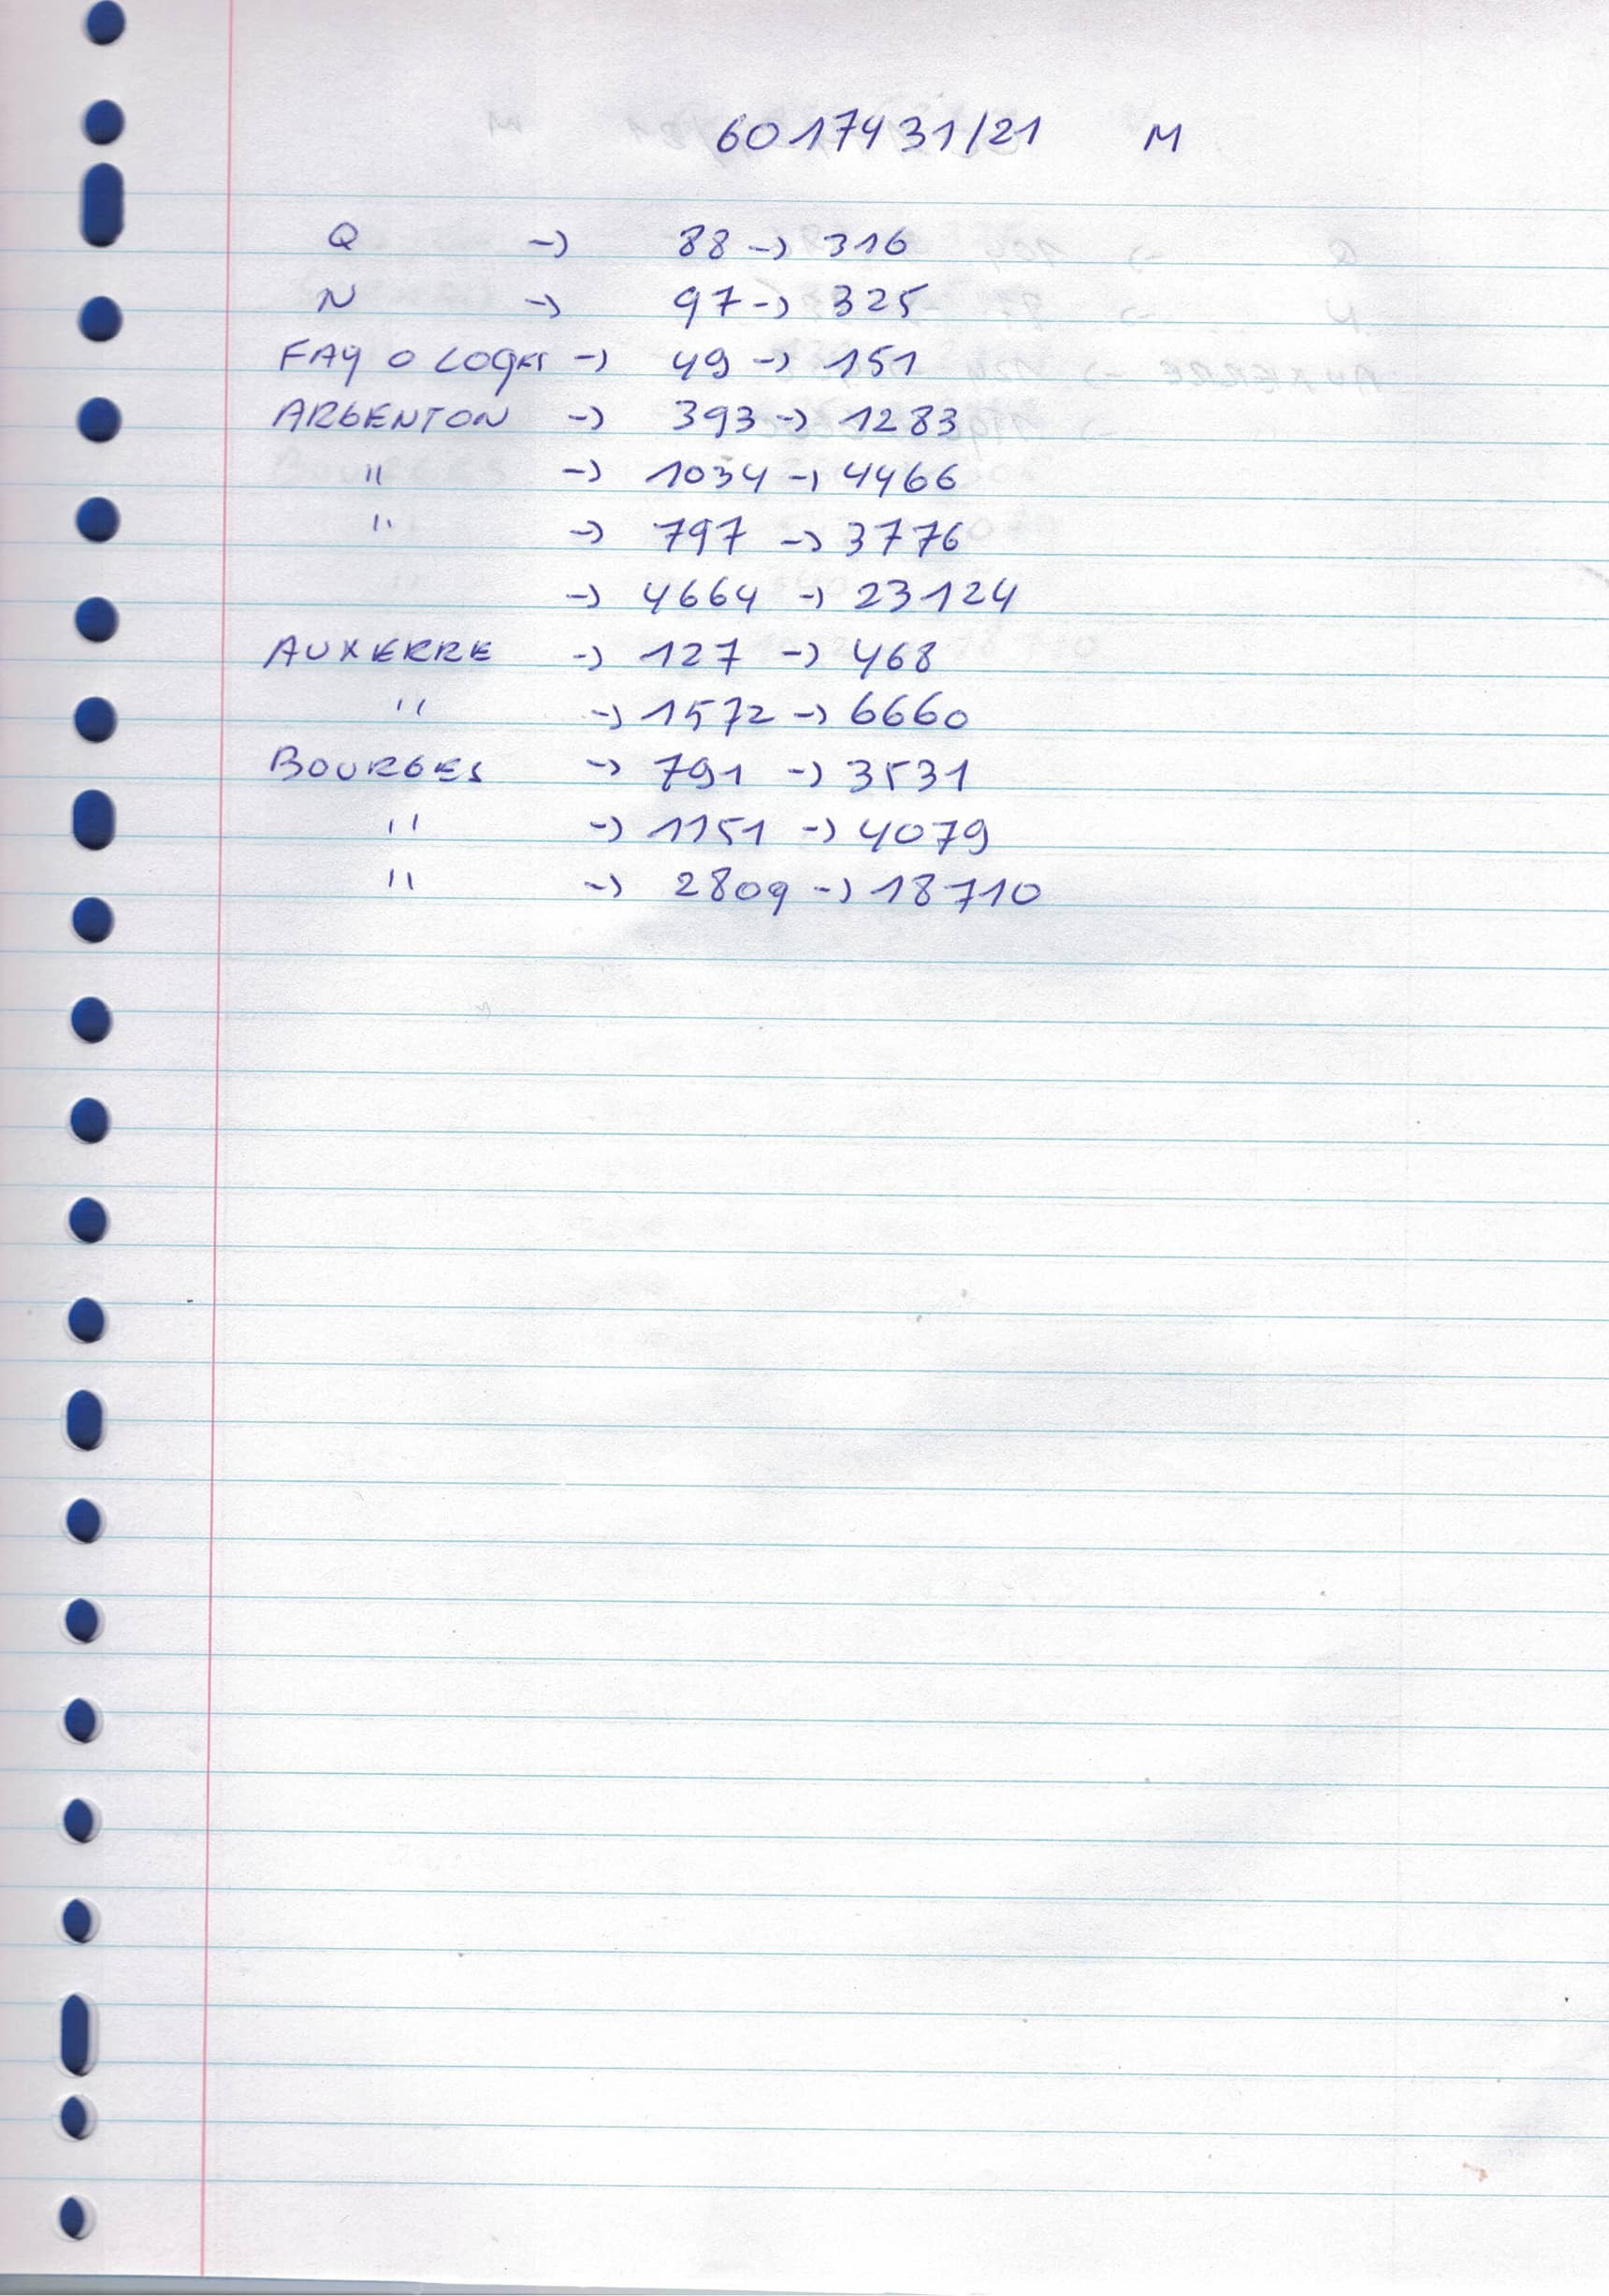 6017431/21 M
Q -> 88 -> 316
N -> 97 -> 325
FAY O LOGES -> 49 -> 151
ARGENTON -> 393 -> 1283
" -> 1034 -> 4466
" -> 797 -> 3776
-> 4664 -> 23124
AUXERRE -> 127 -> 468
" -> 1572 -> 6660
BOURGES -> 791 -> 3531
" -> 1151 -> 4079
" -> 2809 -> 18710